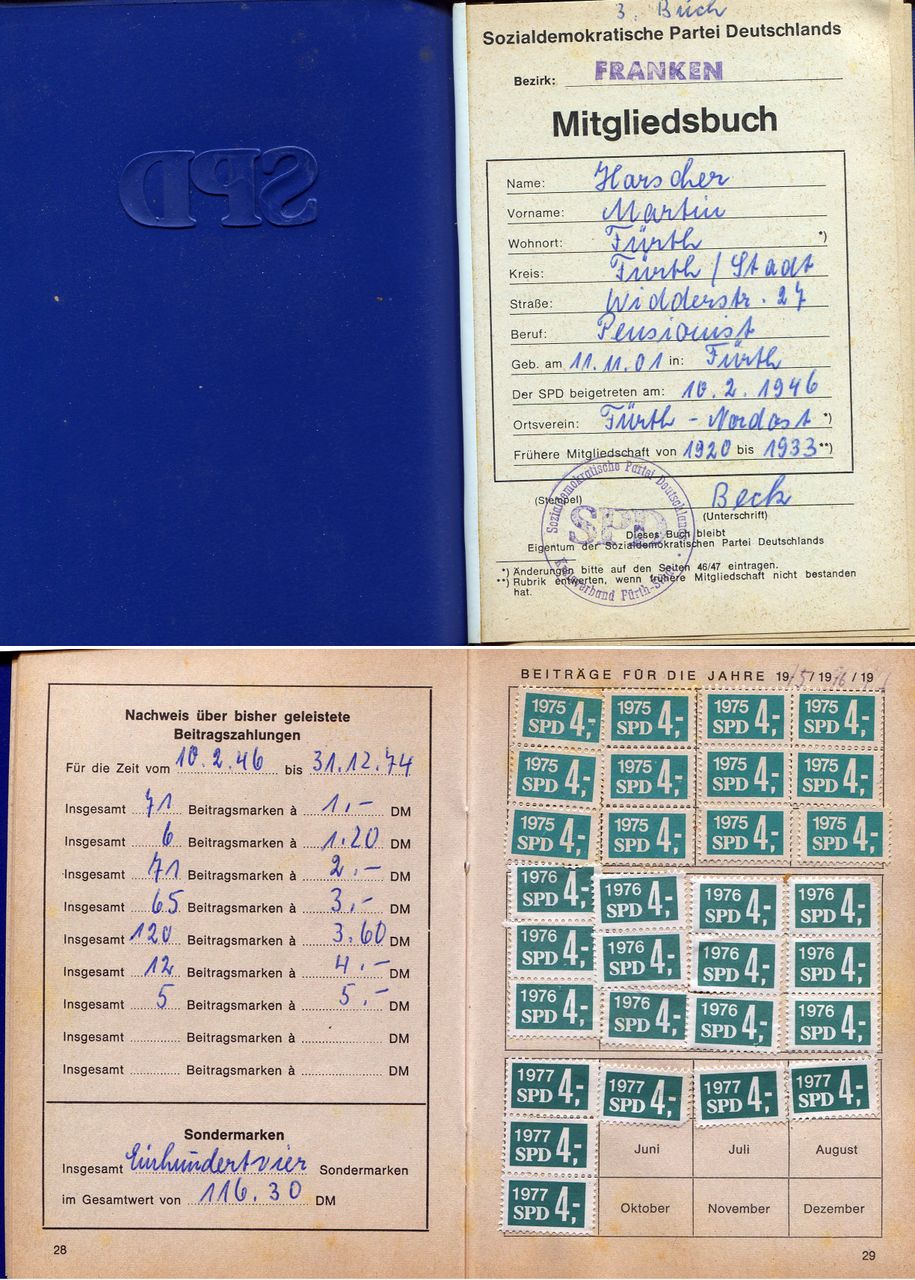 SPD
3. Buch
Sozialdemokratische Partei Deutschlands
Bezirk: FRANKEN
Mitgliedsbuch
Name: Harscher
Vorname: Martin
Wohnort: Fürth *)
Kreis: Fürth / Stadt
Straße: Widderstr. 27
Beruf: Pensionist
Geb. am 11.11.01 in: Fürth
Der SPD beigetreten am: 10.2.1946
Ortsverein: Fürth - Nordost *)
Frühere Mitgliedschaft von 1920 bis 1933 **)
Sozialdemokratische Partei Deutschlands
SPD
Kreisverband Fürth-Stadt
(Stempel) Beck
(Unterschrift)
Dieses Buch bleibt
Eigentum der Sozialdemokratischen Partei Deutschlands
*) Änderungen bitte auf den Seiten 46/47 eintragen.
**) Rubrik entwerten, wenn frühere Mitgliedschaft nicht bestanden
hat.
Nachweis über bisher geleistete
Beitragszahlungen
Für die Zeit vom 10.2.46 bis 31.12.74
Insgesamt 71 Beitragsmarken à 1.- DM
Insgesamt 6 Beitragsmarken à 1.20 DM
Insgesamt 71 Beitragsmarken à 2.- DM
Insgesamt 65 Beitragsmarken à 3.- DM
Insgesamt 120 Beitragsmarken à 3.60 DM
Insgesamt 12 Beitragsmarken à 4.- DM
Insgesamt 5 Beitragsmarken à 5.- DM
Insgesamt Beitragsmarken à DM
Insgesamt Beitragsmarken à DM
Sondermarken
Insgesamt Einhundertvier Sondermarken
im Gesamtwert von 116.30 DM
28
BEITRÄGE FÜR DIE JAHRE 1975/1976/19
1975 1975 1975 1975
SPD 4,- SPD 4,- SPD 4,- SPD 4,-
1975 1975 1975 1975
SPD 4,- SPD 4,- SPD 4,- SPD 4,-
1975 1975 1975 1975
SPD 4,- SPD 4,- SPD 4,- SPD 4,-
1976 1976 1976 1976
SPD 4,- SPD 4,- SPD 4,- SPD 4,-
1976 1976 1976 1976
SPD 4,- SPD 4,- SPD 4,- SPD 4,-
1976 1976 1976 1976
SPD 4,- SPD 4,- SPD 4,- SPD 4,-
1977 1977 1977 1977
SPD 4,- SPD 4,- SPD 4,- SPD 4,-
1977
SPD 4,- Juni Juli August
1977
SPD 4,- Oktober November Dezember
29